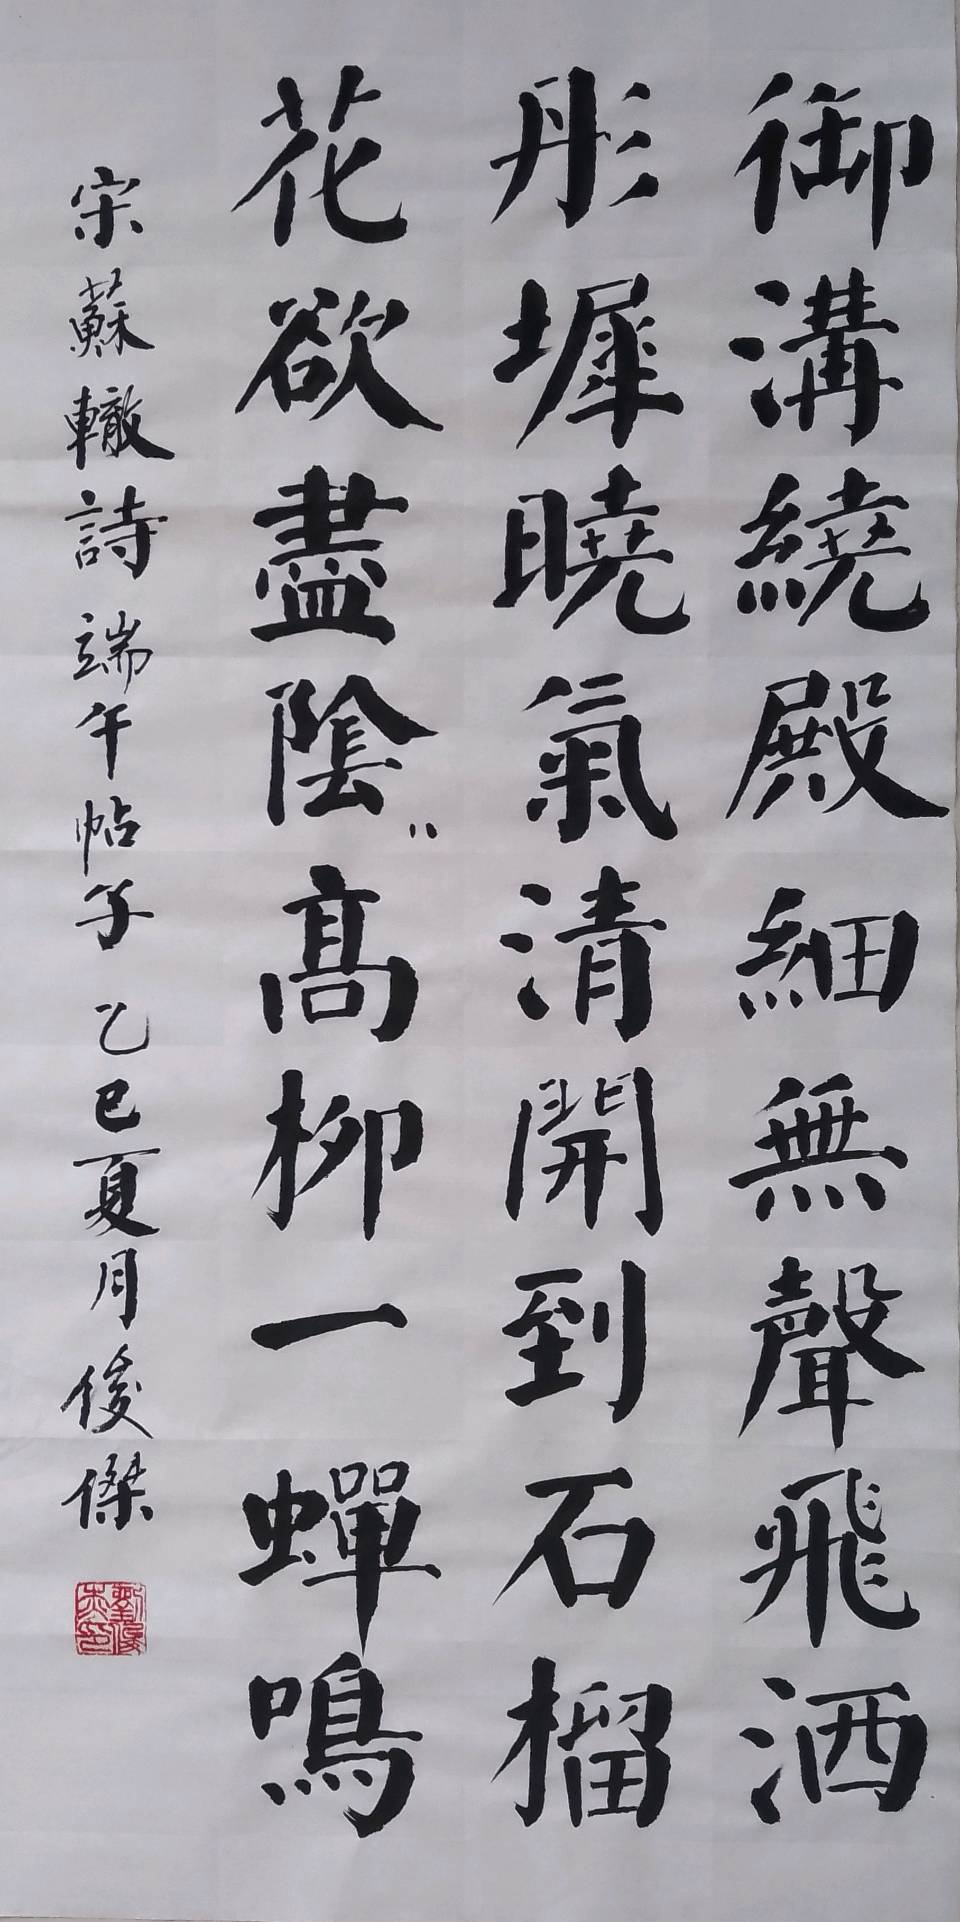 御溝繞殿細無聲飛洒
彤墀曉氣清開到石榴
花欲盡陰〃高柳一蟬鳴
宋蘇轍詩端午帖子乙巳夏月俊傑